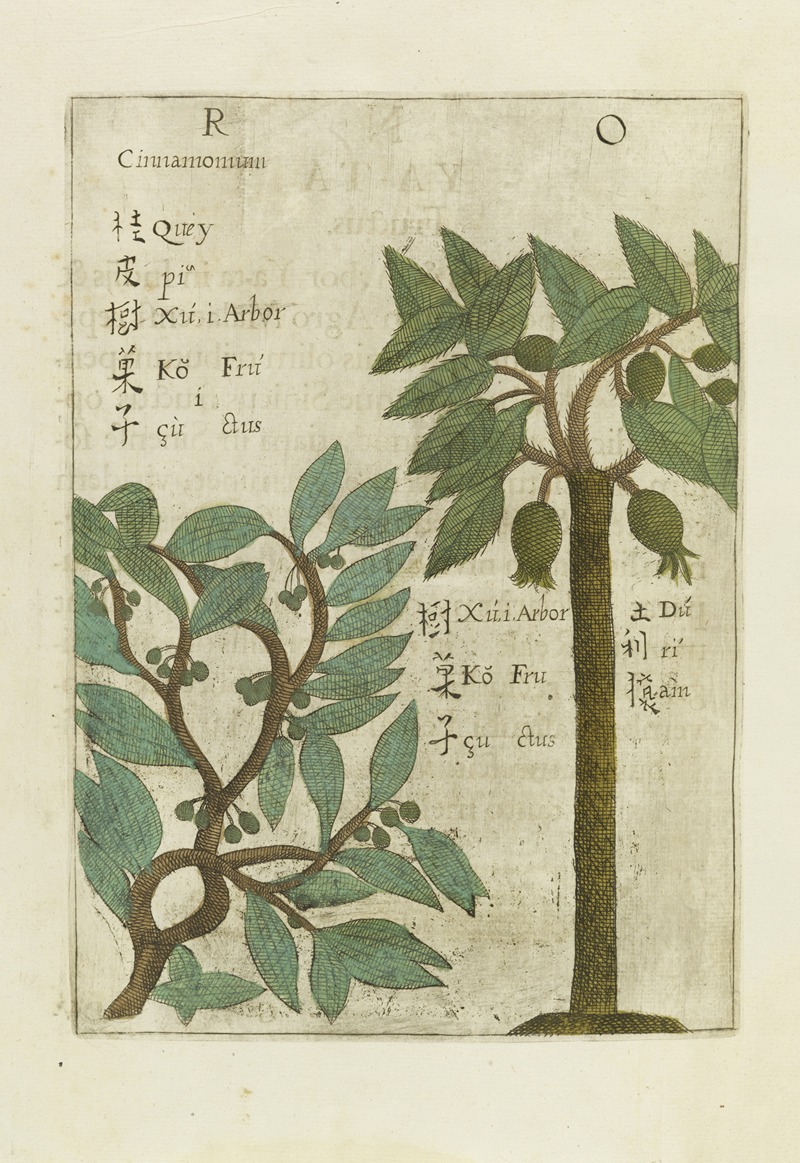 R
Cinnamomum
桂 Quey
皮 pi
樹 Xú, i. Arbor
菓 Kŏ Frú
i
子 çù ctus
O
樹 Xú, i. Arbor
菓 Kŏ Fru
子 çu ctus
土 Dú
利 rí
ain